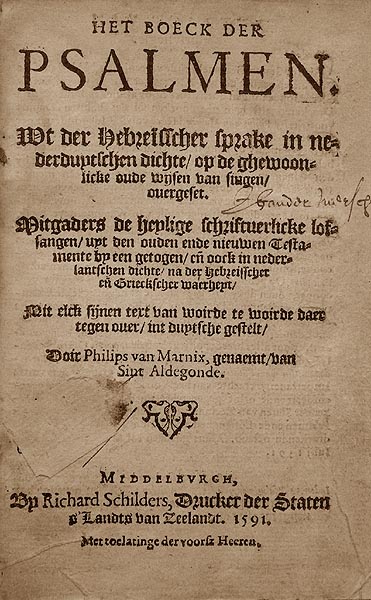 HET BOECK DER
PSALMEN.
Wt der Hebreisscher sprake in ne-
derduytschen dichte/ op de ghewoon-
licke oude wijsen van singen/
ouergeset.
Mitgaders de heylige schriftuerlicke lof-
sangen/ uyt den ouden ende nieuwen Testa-
mente by een getogen/ eñ oock in neder-
lantschen dichte/ na der Hebreisscher
eñ Grieckscher waerheyt/
Mit elck sijnen text van woirde te woirde daer
tegen ouer/ int duytsche gestelt/
Doir Philips van Marnix, genaemt/ van
Sint Aldegonde.
MIDDELBVRGH,
By Richard Schilders, Drucker der Staten
s' Landts van Zeelandt. 1591.
Met toelatinge der voorsz Heeren.